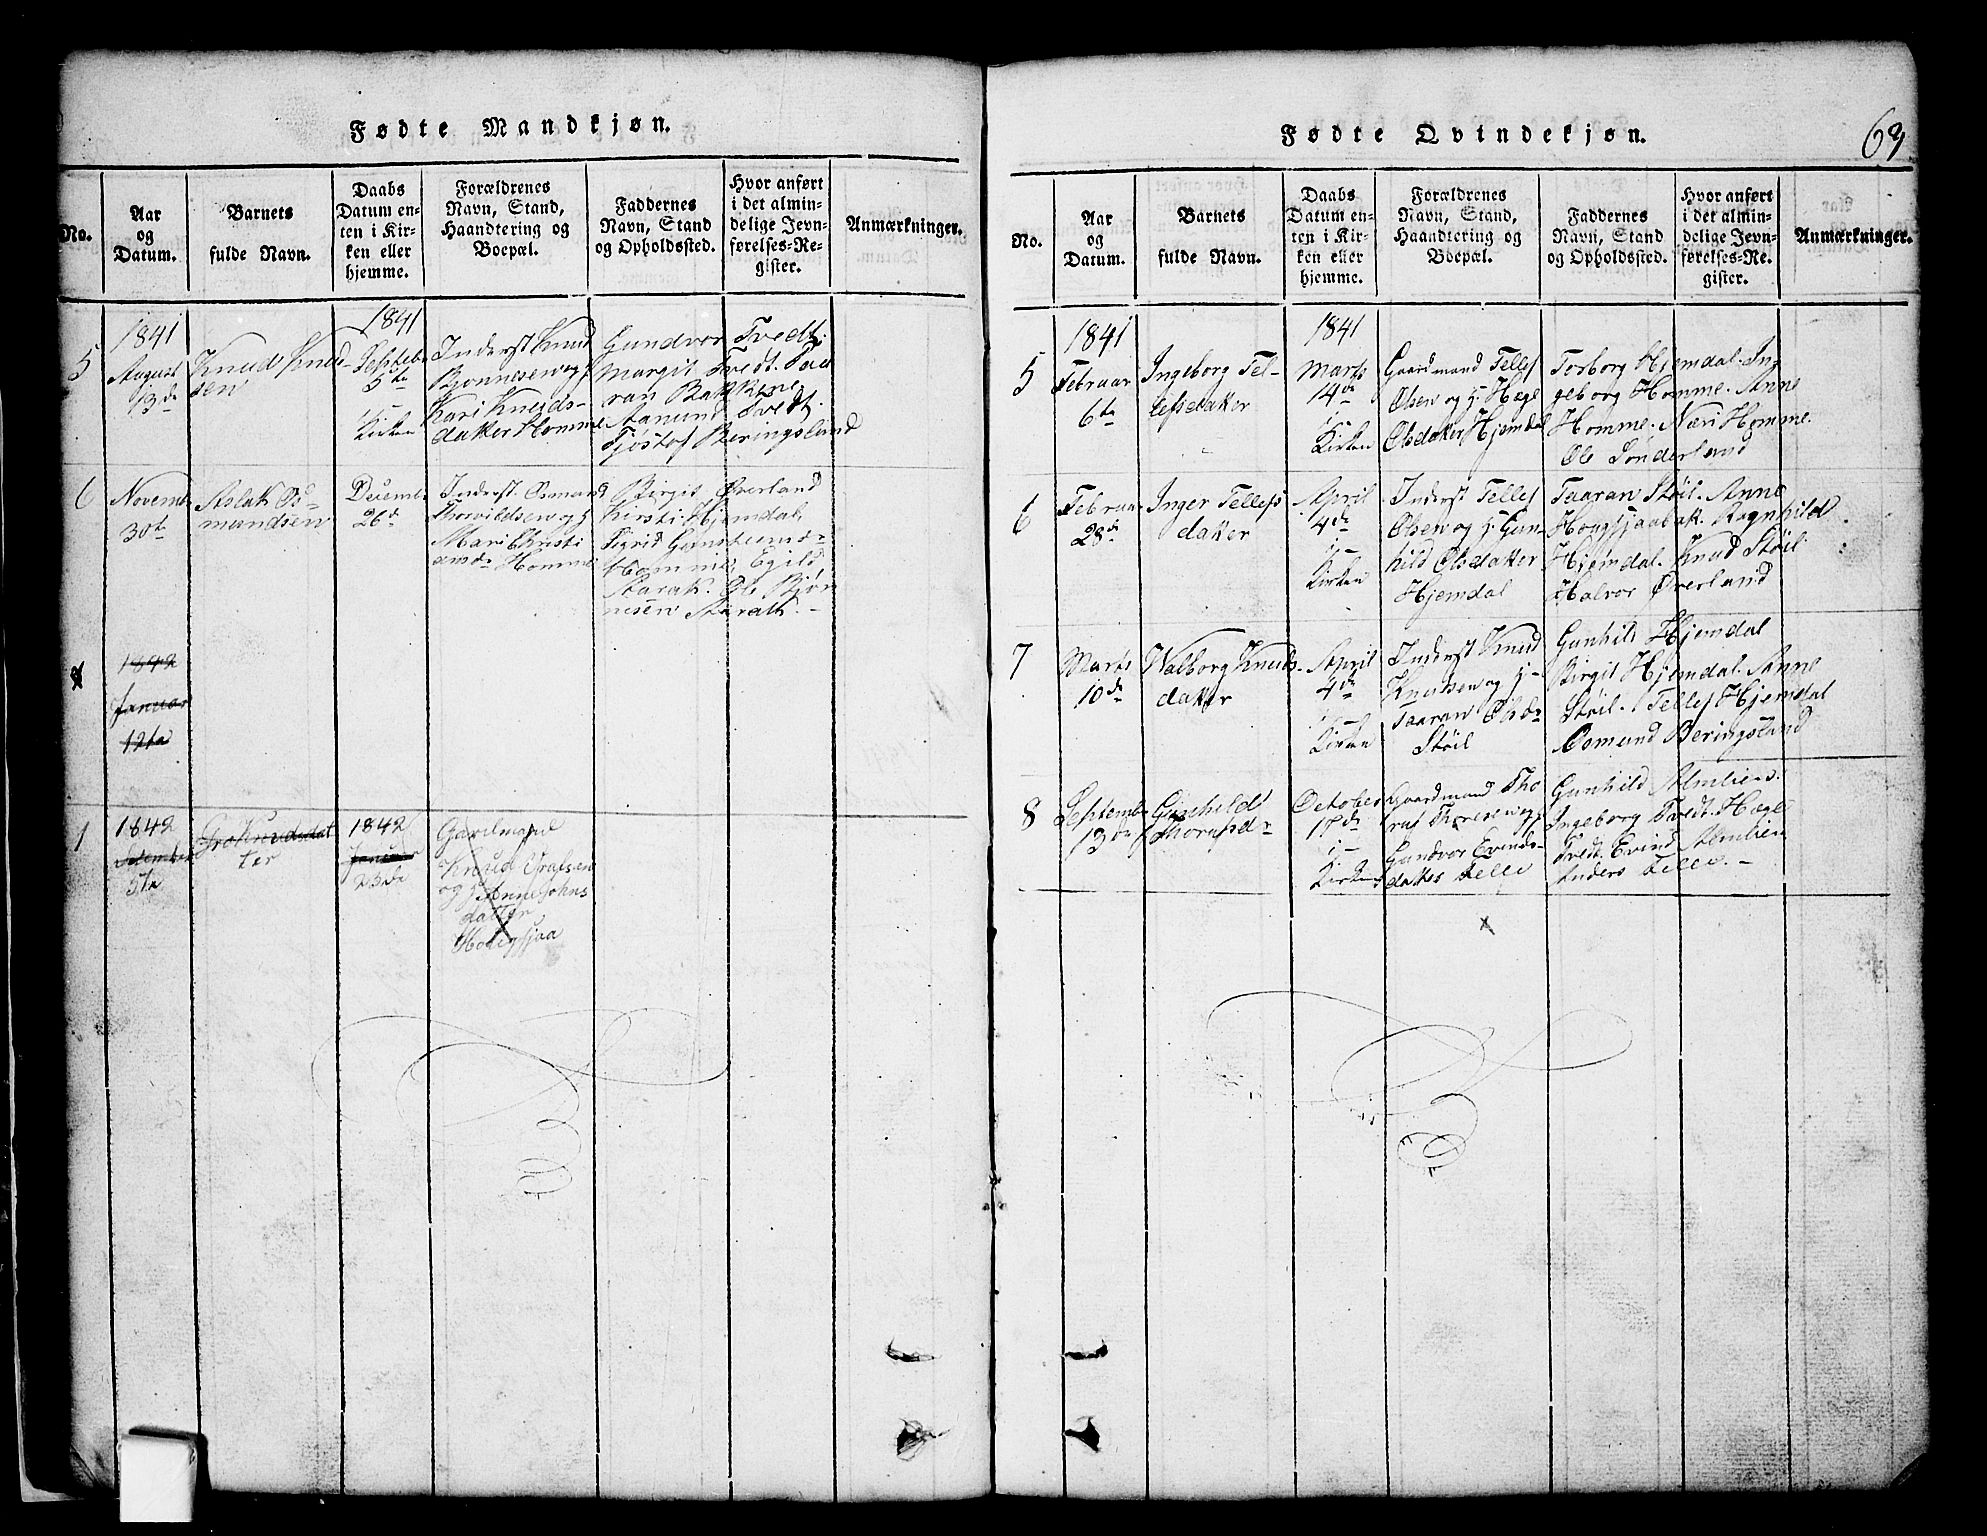 Fødte Mandkjøn.
No.
Aar
og
Datum.
Barnets
fulde Navn.
Daabs
Datum en-
ten i Kir-
ken eller
hjemme.
Forældrenes
Navn, Stand,
Haandtering og
Boepæl.
Faddernes
Navn, Stand
og Opholdssted.
Hvor anført
i det almin-
delige Jevn-
førelses-Re-
gister.
Anmærkninger.
5
1841
August
13de
Knud Knud-
sen
1841
Septebr
5te
i
Kirken
Inderst Knud
Bjonnesen og j
Kari Knuds-
datter Homme
Gundvor Tvedt.
Margit Tvedt.
ran Bakkene
Aanund Tvedt.
Tjøstof Beringsland
6
Novembr
30te
Aslak Os-
mundsen
Decembr
26de
Inderst Osmund
Thorvildsen og j
Mari Christi
ansdr Homme
Birgit Øverland
Kirsti Hjemdal,
Sigrid
Homme, Egild
Aarak. Ole Bjøn
nesen Aarak.
1842
Januar
12te
1
1842
5te
Gro Knudsdat
ter
1842
Januar
23de
Gaardmand
Knud Olafsen
og j Anne Johns
datter
Hougsjaa
Fødte Qvindekjøn.
69
No.
Aar
og
Datum.
Barnets
fulde Navn.
Daabs
Datum en-
ten i Kir-
ken eller
hjemme.
Forældrenes
Navn, Stand,
Haandtering og
Boepæl.
Faddernes
Navn, Stand
og Opholdssted.
Hvor anført
i det almin-
delige Jevn-
førelses-Re-
gister.
Anmærkninger.
5
1841
Februar
6te
Ingeborg Tel-
lefsdatter
1841
Marts
14de
i
Kirken
Gaardmand Tellef
Olsen og j. Hæge
Olsdatter Hjemdal
Torborg Hjemdal. In-
geborg Homme. Anne
Homme. Næri Homme.
Ole Sønderland
6
Februar
28de
Inger Tellefs
datter
April
4de
i
Kirken
Inderst Tellef
Olsen og j. Gun-
hild Olsdatter
Hjemdal
Taaran Støil. Anne
Hougsjaabak. Ragnhild
Hjemdal. Knud Støil
Halvor Øverland
7
Marts
10de
Walborg Knuds-
datter
April
4de
i
Kirken
Inderst Knud
Knudsen og j-
Taaran Olsdr
Støil
Gunhild Hjemdal
Birgit Hjemdal. Anne
Støil. Tellef Hjemdal
Osmund Beringsland
8
Septembr
13de
Gunhild
Thorafsdr
October
17de
i
Kirken
Gaardmand Tho
raf Thoresen og j
Gundvor Evinds-
datter Felle
Gunhild Almlien.
Ingeborg Tvedt. Hæge
Tvedt. Evind Almlien
Anders Felle.